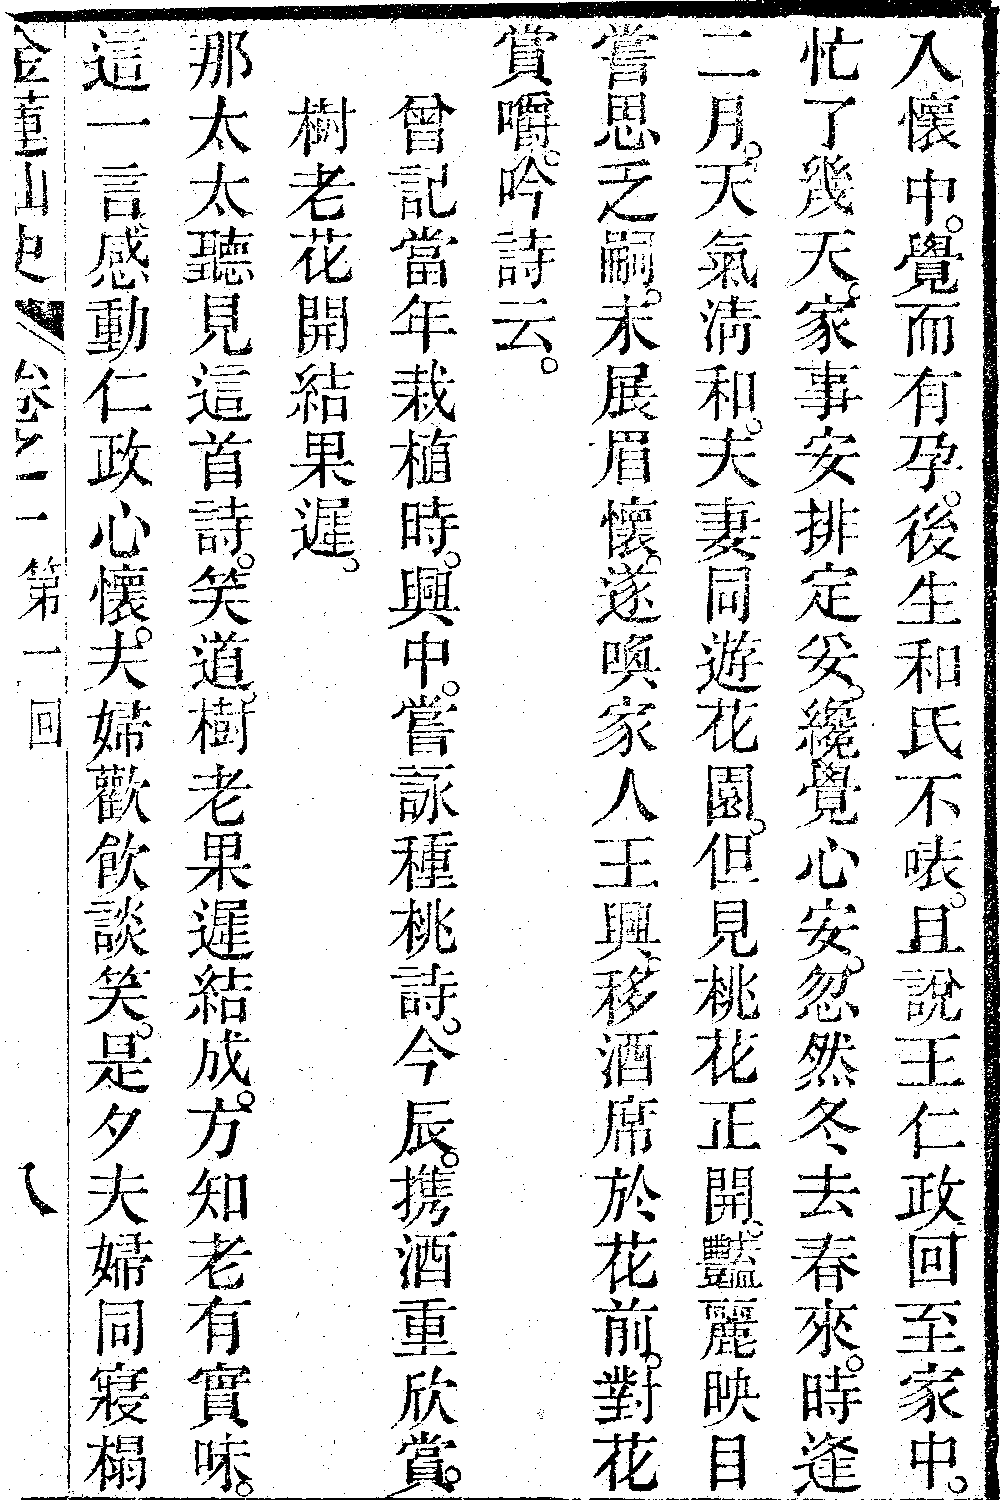 入懷中。覺而有孕。後生和氏不表。且說王仁政回至家中。
忙了幾天。家事安排定妥。纔覺心安。忽然冬去春來。時逢
二月。天氣淸和。夫妻同遊花園。但見桃花正開。豔麗映目
嘗思乏嗣。未展眉懷。遂喚家人王興。移酒席於花前。對花
賞嚼。吟詩云。
曾記當年栽植時。興中。嘗詠種桃詩。今辰。携酒重欣賞。
樹老花開結果遲。
那太太聽見這首詩。笑道。樹老果遲結成。方知老有實味。
這一言感動仁政心懷。夫婦歡飲談笑。是夕夫婦同寢榻
金蓮仙史 卷之一 第一回 八